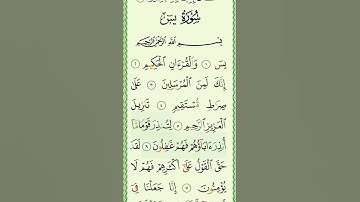 سُورَةُ يسٓ
بِسْمِ ٱللَّهِ ٱلرَّحْمَٰنِ ٱلرَّحِيمِ
يسٓ ١ وَٱلْقُرْءَانِ ٱلْحَكِيمِ ٢
إِنَّكَ لَمِنَ ٱلْمُرْسَلِينَ ٣ عَلَىٰ
صِرَٰطٍ مُّسْتَقِيمٍ ٤ تَنزِيلَ
ٱلْعَزِيزِ ٱلرَّحِيمِ ٥ لِتُنذِرَ قَوْمًا مَّآ
أُنذِرَ ءَابَآؤُهُمْ فَهُمْ غَٰفِلُونَ ٦ لَقَدْ
حَقَّ ٱلْقَوْلُ عَلَىٰٓ أَكْثَرِهِمْ فَهُمْ لَا
يُؤْمِنُونَ ٧ إِنَّا جَعَلْنَا فِىٓ